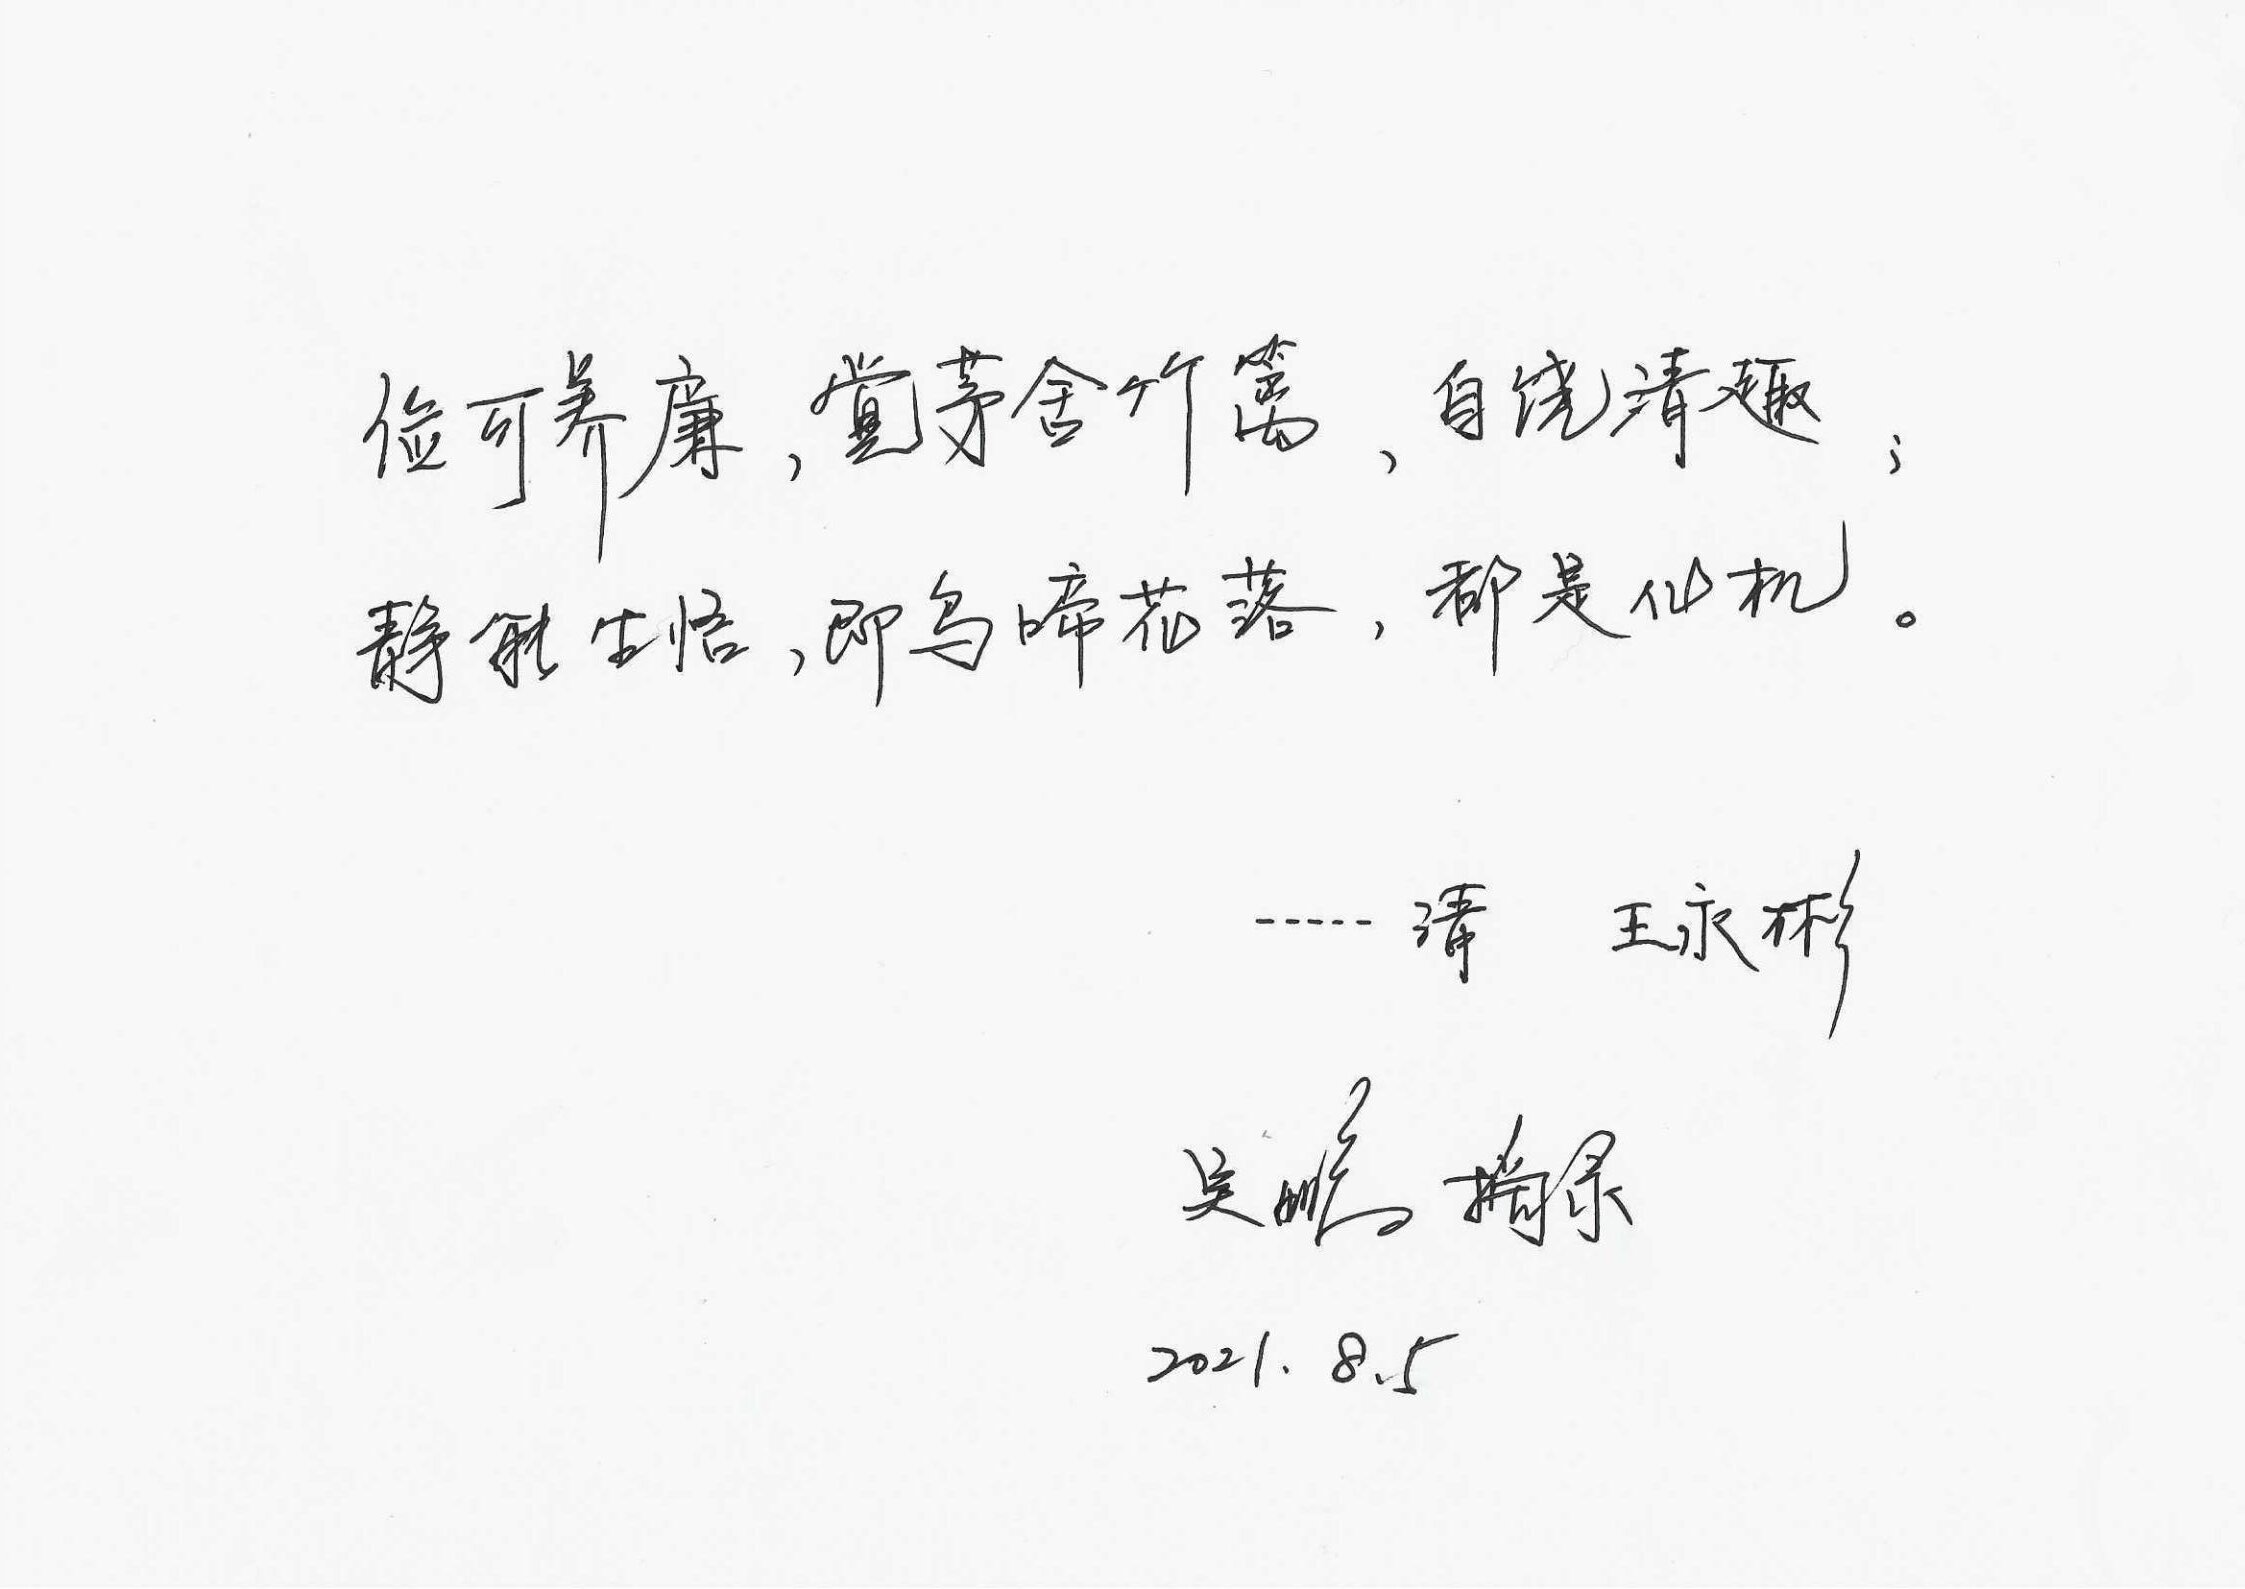 俭可养廉，觉茅舍竹篱，自饶清趣；
静能生悟，即鸟啼花落，都是仙机。
-----清 王永彬
吴鹏 摘录
2021.8.5